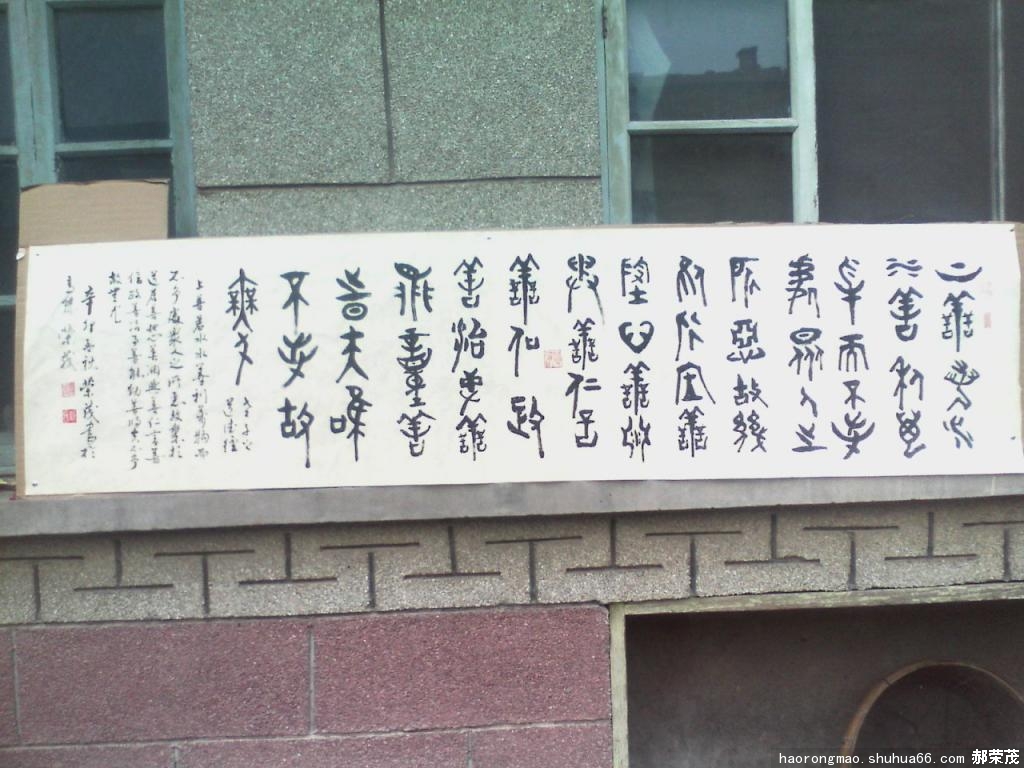 上善若水
水善利萬
物而不爭
衆人之
所惡故幾
善
地心善淵
與善仁言
善信政
善治事善
能動善
時夫唯
不爭故
無尤
老子句
道德經
上善若水水善利萬物而
不爭處衆人之所惡故幾於
道居善地心善淵與善仁言善
信政善治事善能動善時夫唯不爭
故無尤
辛卯 秋榮茂書於
榮茂
haorongmao.shuhua66.com 郝荣茂